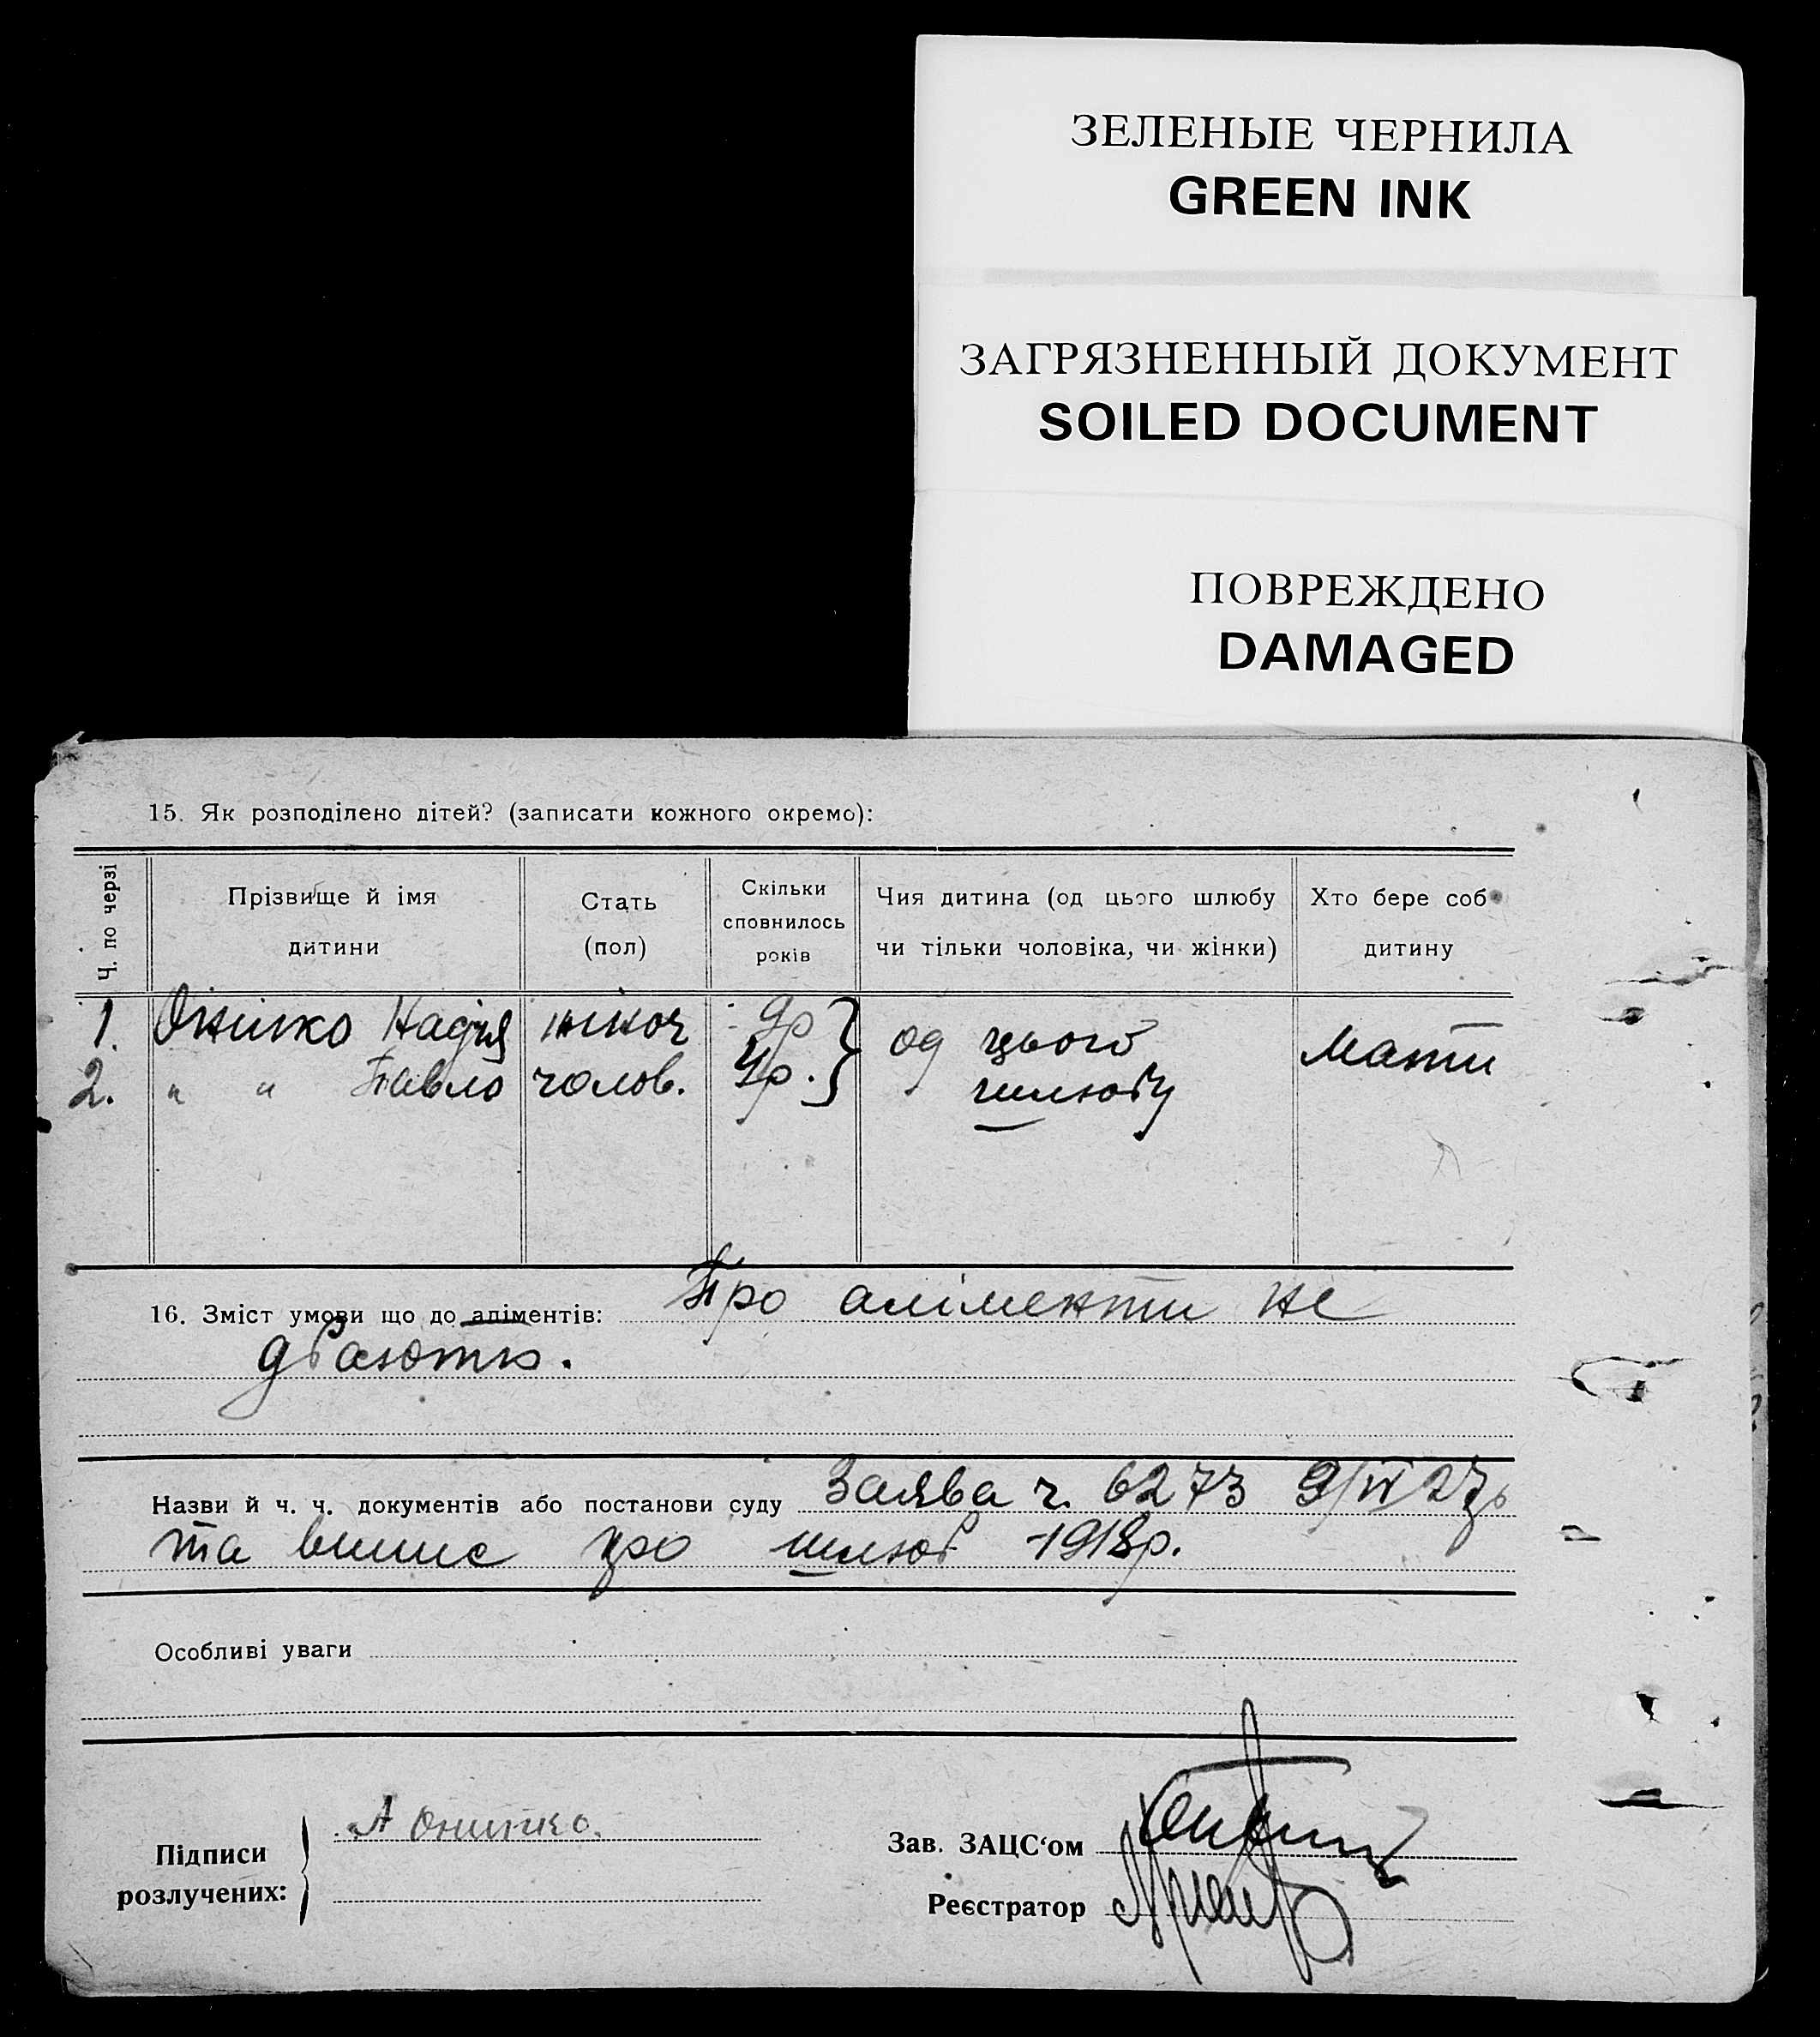 ЗЕЛЕНЫЕ ЧЕРНИЛА
GREEN INK
ЗАГРЯЗНЕННЫЙ ДОКУМЕНТ
SOILED DOCUMENT
ПОВРЕЖДЕНО
DAMAGED
15. Як розподілено дітей? (записати кожного окремо):
Ч. по черзі
Прізвище й імя
дитини
Стать
(пол)
Скільки
сповнилось
років
Чия дитина (од цього шлюбу
чи тільки чоловіка, чи жінки)
Хто бере соб
дитину
1. Оніпко Надія жіноч
2. " " Павло чолов.
од цього
шлюбу
Мати
16. Зміст умови що до аліментів: Про аліменти не
дбають.
Назви й ч. ч. документів або постанови суду Заява ч. 6273 9/IV 27р
та випис про шлюб 1918р.
Особливі уваги
Підписи
розлучених:
А Онипко.
Зав. ЗАЦС‘ом
Реєстратор